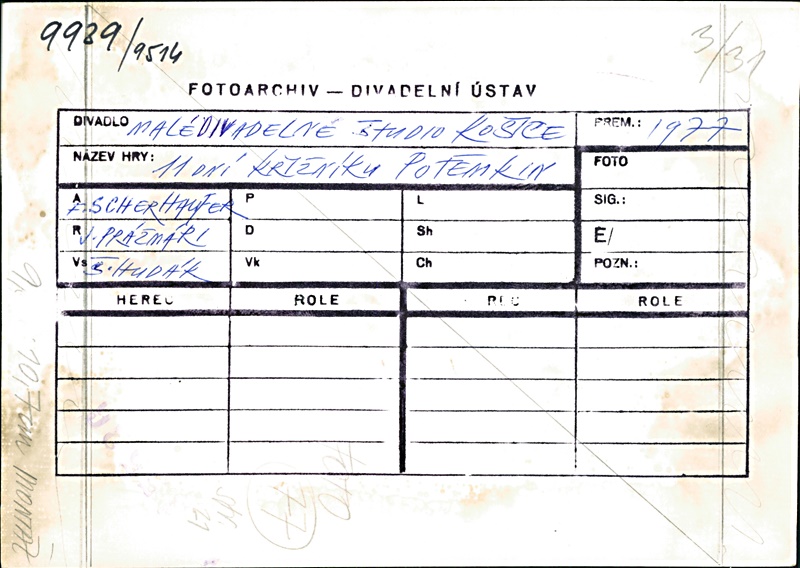 9939/9514
3/31
FOTOARCHIV — DIVADELNÍ ÚSTAV
DIVADLO MALÉ DIVADELNÉ ŠTUDIO KOŠICE PREM.: 1977
NÁZEV HRY: 11 DNÍ KŘIŽNÍKU POTEMKIN FOTO
A P. SCHERHAUFER P L SIG.:
R J. PRAŽMÁRI D Sh E/
Vs Š. HUDÁK Vk Ch POZN.:
HEREC ROLE ROLE
10,7cm MONTÁŽ
FOTO
77